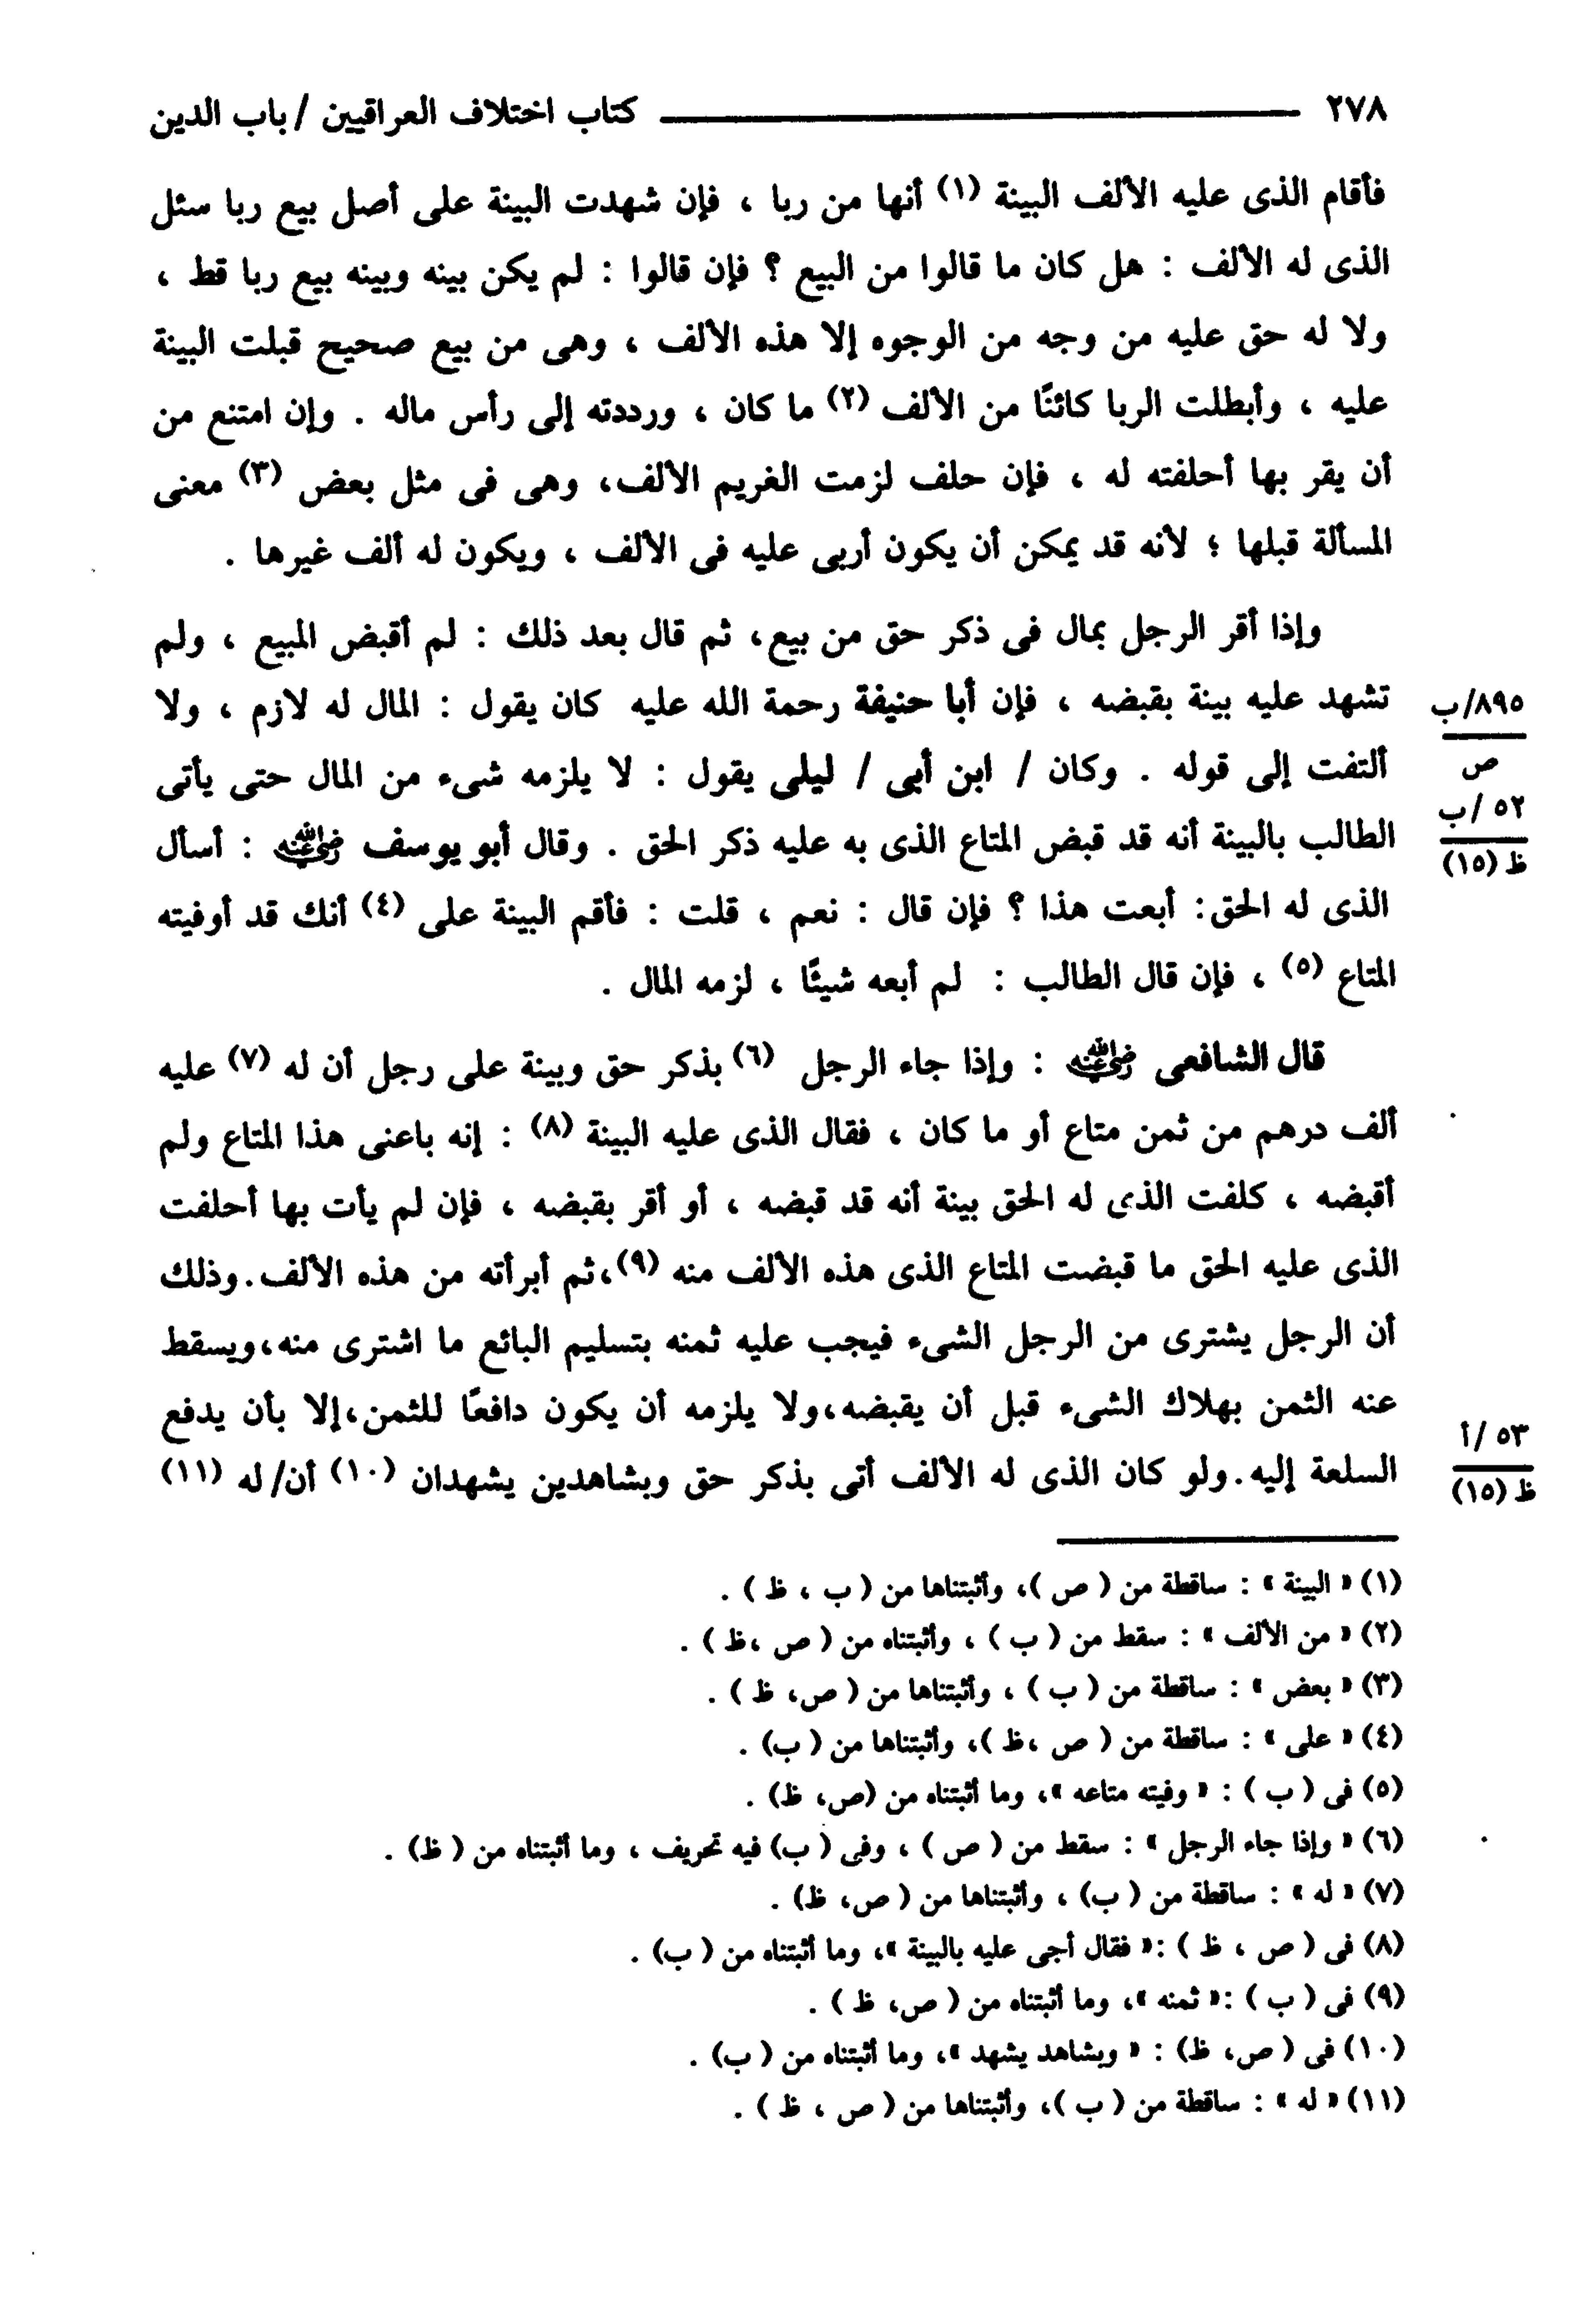 ٢٧٨ كتاب اختلاف العراقيين / باب الدين
فأقام الذى عليه الألف البينة (١) أنها من ربا ، فإن شهدت البينة على أصل بيع ربا سئل
الذى له الألف : هل كان ما قالوا من البيع ؟ فإن قالوا : لم يكن بينه وبينه بيع ربا قط ،
ولا له حق عليه من وجه من الوجوه إلا هذه الألف ، وهى من بيع صحيح قبلت البينة
عليه ، وأبطلت الربا كائنًا من الألف (٢) ما كان ، ورددته إلى رأس ماله . وإن امتنع من
أن يقر بها أحلفته له ، فإن حلف لزمت الغريم الألف، وهى فى مثل بعض (٣) معنى
المسألة قبلها ؛ لأنه قد يمكن أن يكون أربى عليه فى الألف ، ويكون له ألف غيرها .
وإذا أقر الرجل بمال فى ذكر حق من بيع، ثم قال بعد ذلك : لم أقبض المبيع ، ولم
تشهد عليه بينة بقبضه ، فإن أبا حنيفة رحمة الله عليه كان يقول : المال له لازم ، ولا
ألتفت إلى قوله . وكان / ابن أبى / ليلى يقول : لا يلزمه شىء من المال حتى يأتى
الطالب بالبينة أنه قد قبض المتاع الذى به عليه ذكر الحق . وقال أبو يوسف رضي الله عنه : أسأل
الذى له الحق: أبعت هذا ؟ فإن قال : نعم ، قلت : فأقم البينة على (٤) أنك قد أوفيته
المتاع (٥) ، فإن قال الطالب : لم أبعه شيئًا ، لزمه المال .
قال الشافعى رضي الله عنه : وإذا جاء الرجل (٦) بذكر حق وبينة على رجل أن له (٧) عليه
ألف درهم من ثمن متاع أو ما كان ، فقال الذى عليه البينة (٨) : إنه باعنى هذا المتاع ولم
أقبضه ، كلفت الذى له الحق بينة أنه قد قبضه ، أو أقر بقبضه ، فإن لم يأت بها أحلفت
الذى عليه الحق ما قبضت المتاع الذى هذه الألف منه (٩)،ثم أبرأته من هذه الألف.وذلك
أن الرجل يشترى من الرجل الشىء فيجب عليه ثمنه بتسليم البائع ما اشترى منه،ويسقط
عنه الثمن بهلاك الشىء قبل أن يقبضه،ولا يلزمه أن يكون دافعًا للثمن،إلا بأن يدفع
السلعة إليه.ولو كان الذى له الألف أتى بذكر حق وبشاهدين يشهدان (١٠) أن/ له (١١)
٨٩٥/ب
ص
٥٢ /ب
ظ (١٥)
٥٣ /أ
ظ (١٥)
(١) « البينة » : ساقطة من ( ص )، وأثبتناها من ( ب ، ظ ) .
(٢) « من الألف » : سقط من ( ب ) ، وأثبتناه من ( ص ،ظ ) .
(٣) « بعض » : ساقطة من ( ب ) ، وأثبتناها من ( ص، ظ ) .
(٤) « على » : ساقطة من ( ص ،ظ )، وأثبتناها من ( ب) .
(٥) فى ( ب ) : « وفيته متاعه »، وما أثبتناه من (ص، ظ) .
(٦) « وإذا جاء الرجل » : سقط من ( ص ) ، وفى ( ب) فيه تحريف ، وما أثبتناه من ( ظ) .
(٧) « له » : ساقطة من ( ب) ، وأثبتناها من ( ص، ظ) .
(٨) فى ( ص ، ظ ) :« فقال أجى عليه بالبينة »، وما أثبتناه من ( ب) .
(٩) فى ( ب ) :« ثمنه »، وما أثبتناه من ( ص، ظ ) .
(١٠) فى ( ص، ظ) : « وبشاهد يشهد »، وما أثبتناه من ( ب) .
(١١) « له » : ساقطة من ( ب )، وأثبتناها من ( ص ، ظ ) .